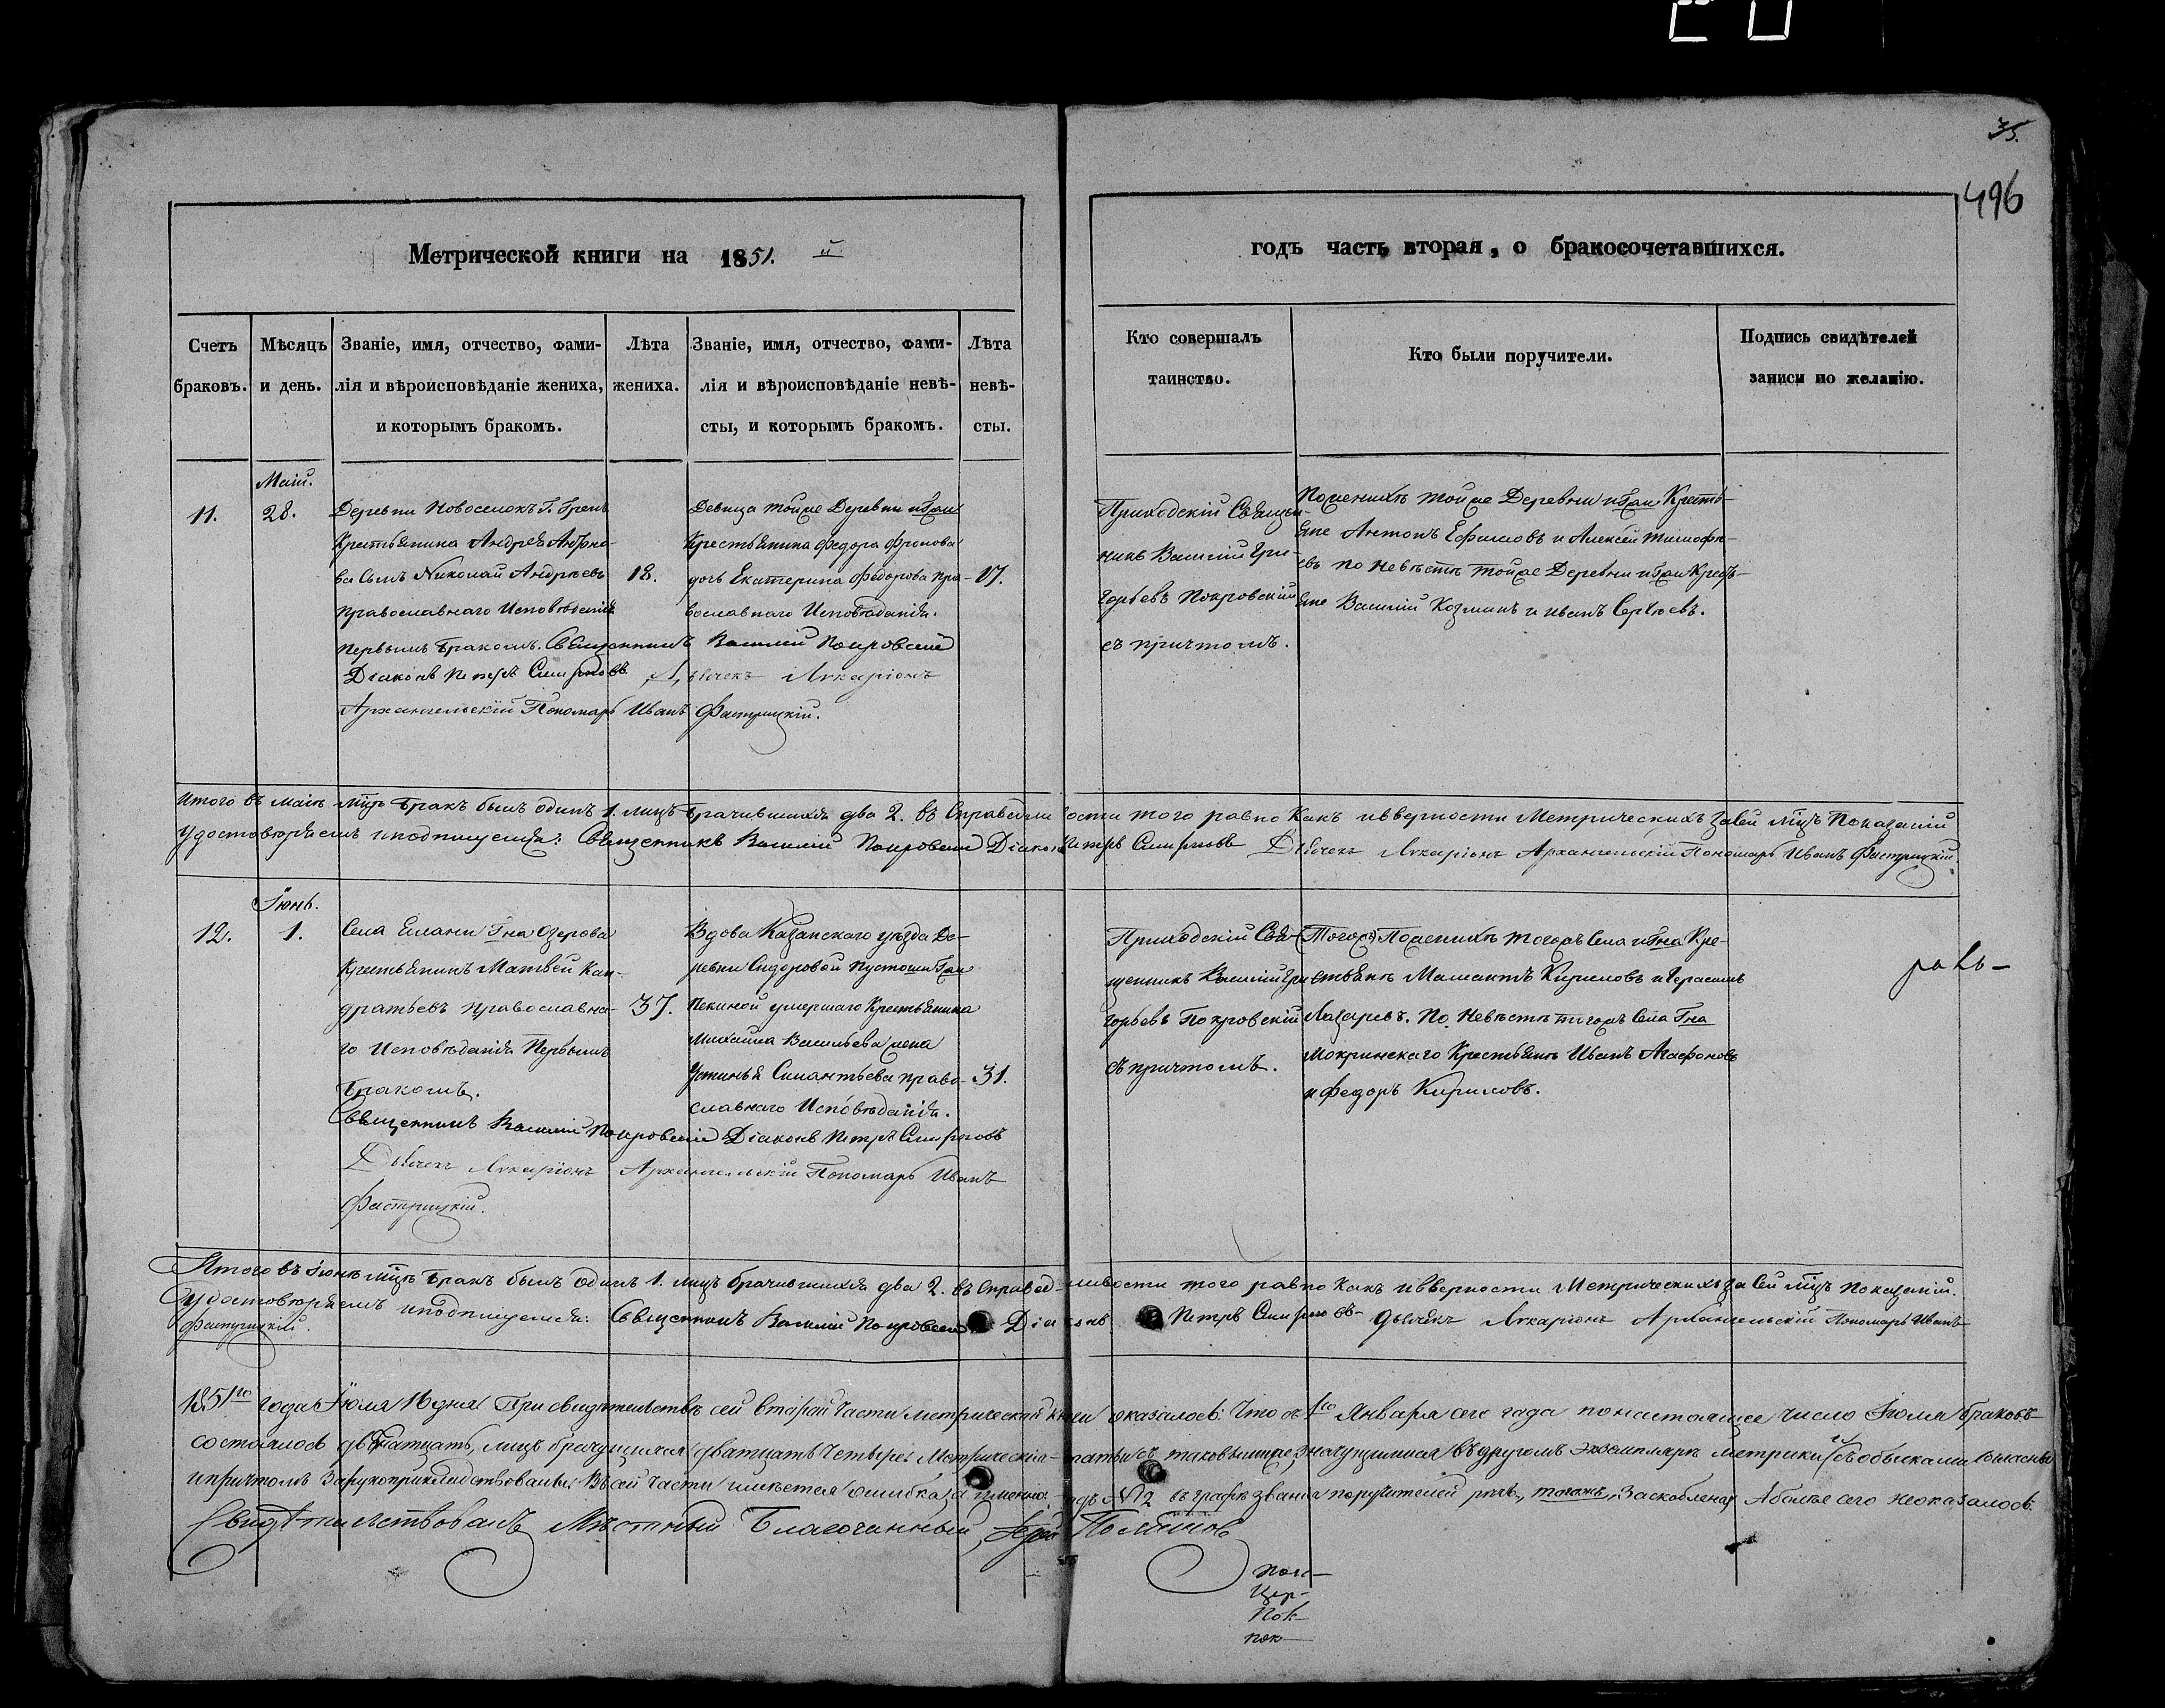 35.
496
Метрической книги на 1851. й
годъ часть вторая, о бракосочетавшихся.
Счетъ браковъ.
Мѣсяцъ и день.
Званіе, имя, отчество, фами-
лія и вѣроисповѣданіе жениха,
и которымъ бракомъ.
Лѣта
жениха.
Званіе, имя, отчество, фами-
лія и вѣроисповѣданіе невѣ-
сты, и которымъ бракомъ.
Лѣта
невѣ-
сты.
Кто совершалъ
таинство.
Кто были поручители.
Подпись свидѣтелей
записи по желанію.
Маій.
11.
28.
Деревни Новоселокъ Г.
Крестьянина Андрея
ва Сынъ Николай Андреевъ
Православнаго Исповѣданія
первымъ бракомъ. Священникъ Василій Покровскій
Діаконъ Петръ Смирновъ Дьячекъ Иларіонъ
Архангельскій Пономарь Иванъ
18.
Девица тойже Деревни и Гжи
Крестьянина Федора Фролова
дочь Екатерина Федорова пра-
вославнаго Исповѣданія.
17.
Приходскій Священ-
никъ Василій Гри-
горьевъ Покровскій
съ причтомъ.
По женихѣ тойже Деревни и Гжи Кресть-
яне Антонъ Ефимовъ и Алексей Тимофе-
евъ по невѣстѣ тойже Деревни и Гжи Кресть-
яне Василій Козминъ и Иванъ Сергѣевъ.
Итого въ маіѣ мцѣ бракъ былъ одинъ 1. лицъ брачившихся два 2. въ справедливости того равно какъ и вверности Метрическихъ за сей мцъ показаній
удостовѣряемъ и подписуемся: Священникъ Василій Покровскій Діаконъ Петръ Смирновъ Дьячекъ Иларіонъ Архангельскій Пономарь Иванъ
Іюнь.
12.
1.
Села Елани Гна Озерова
Крестьянинъ Матвей Кан-
дратьевъ православна-
го Исповѣданія Первымъ
бракомъ.
37.
Вдова Казанскаго уѣзда Де-
ревни Сидоровой Пустоши Гжи
умершаго Крестьянина
Михаила Васильева жена
Устинья Силантьева право-
славнаго Исповѣданія.
31.
Священникъ Василій Покровскій Діаконъ Петръ Смирновъ
Дьячекъ Иларіонъ Архангельскій Пономарь Иванъ
Приходскій Свя-
щенникъ Василій Гри-
горьевъ Покровскій
съ причтомъ.
(Тогожъ) По женихѣ тогожъ Села и Гна Кре-
стьяне Кириловъ и Герасимъ
Лазаревъ. По Невѣстѣ тогожъ Села Гна
Мокринскаго Крестьяне Иванъ Агафоновъ
и Федоръ Кириловъ.
Итого въ Іюнѣ мцѣ бракъ былъ одинъ 1. лицъ брачившихся два 2. въ справедливости того равно какъ и вверности Метрическихъ за сей мцъ показаній.
удостовѣряемъ и подписуемся: Священникъ Василій Покровскій Діаконъ Петръ Смирновъ Дьячекъ Иларіонъ Архангельскій Пономарь Иванъ
1851го года Іюля 16 дня При свидѣтельствѣ сей второй части метрической книги оказалось: Что съ 1го Января сего года по настоящее число Іюля браковъ
состоялось двѣнатцать, лицъ дватцать четыре: Метрическія статьи съ таковымиже, значущимися въ другомъ экземплярѣ метрики и съ обысками согласны
и причтомъ зарукоприкладствованы. Въ сей части имѣется ошибка, а именно: подъ № 12 въ графѣ званія поручителей рѣчь, тогожъ, заскоблена, А болѣе сего неоказалось.
Свидѣтельствовалъ Мѣстный Благочинный,